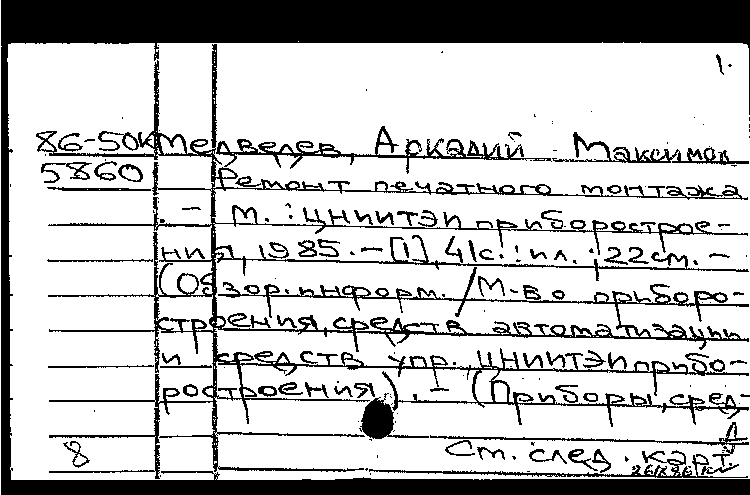 1.
86-50К Медведев, Аркадий Максимов
5860 Ремонт печатного монтажа
. – М. : ЦНИИТЭИ приборострое-
ния, 1985. – [1], 41 с. : ил. ; 22 см. –
(Обзор. информ. / М-во приборо-
строения, средств автоматизации
и средств упр., ЦНИИТЭИ прибо-
ростроения). – (Приборы, сред-
8 См. след. карт.